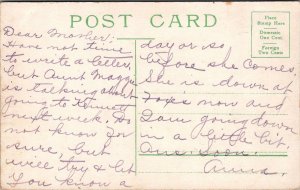 POST CARD
Place
Stamp Here
Domestic
One Cent
Foreign
Two Cents
Dear Mother.
Have not time
to write a letter,
but Aunt Maggie
is talking about
going to
next week. Do
not know for
sure, but
will try & let
you know a
day or so
before she comes.
She is down at
now and
I am going down
in a little bit.
Ans. Soon.
Anna.